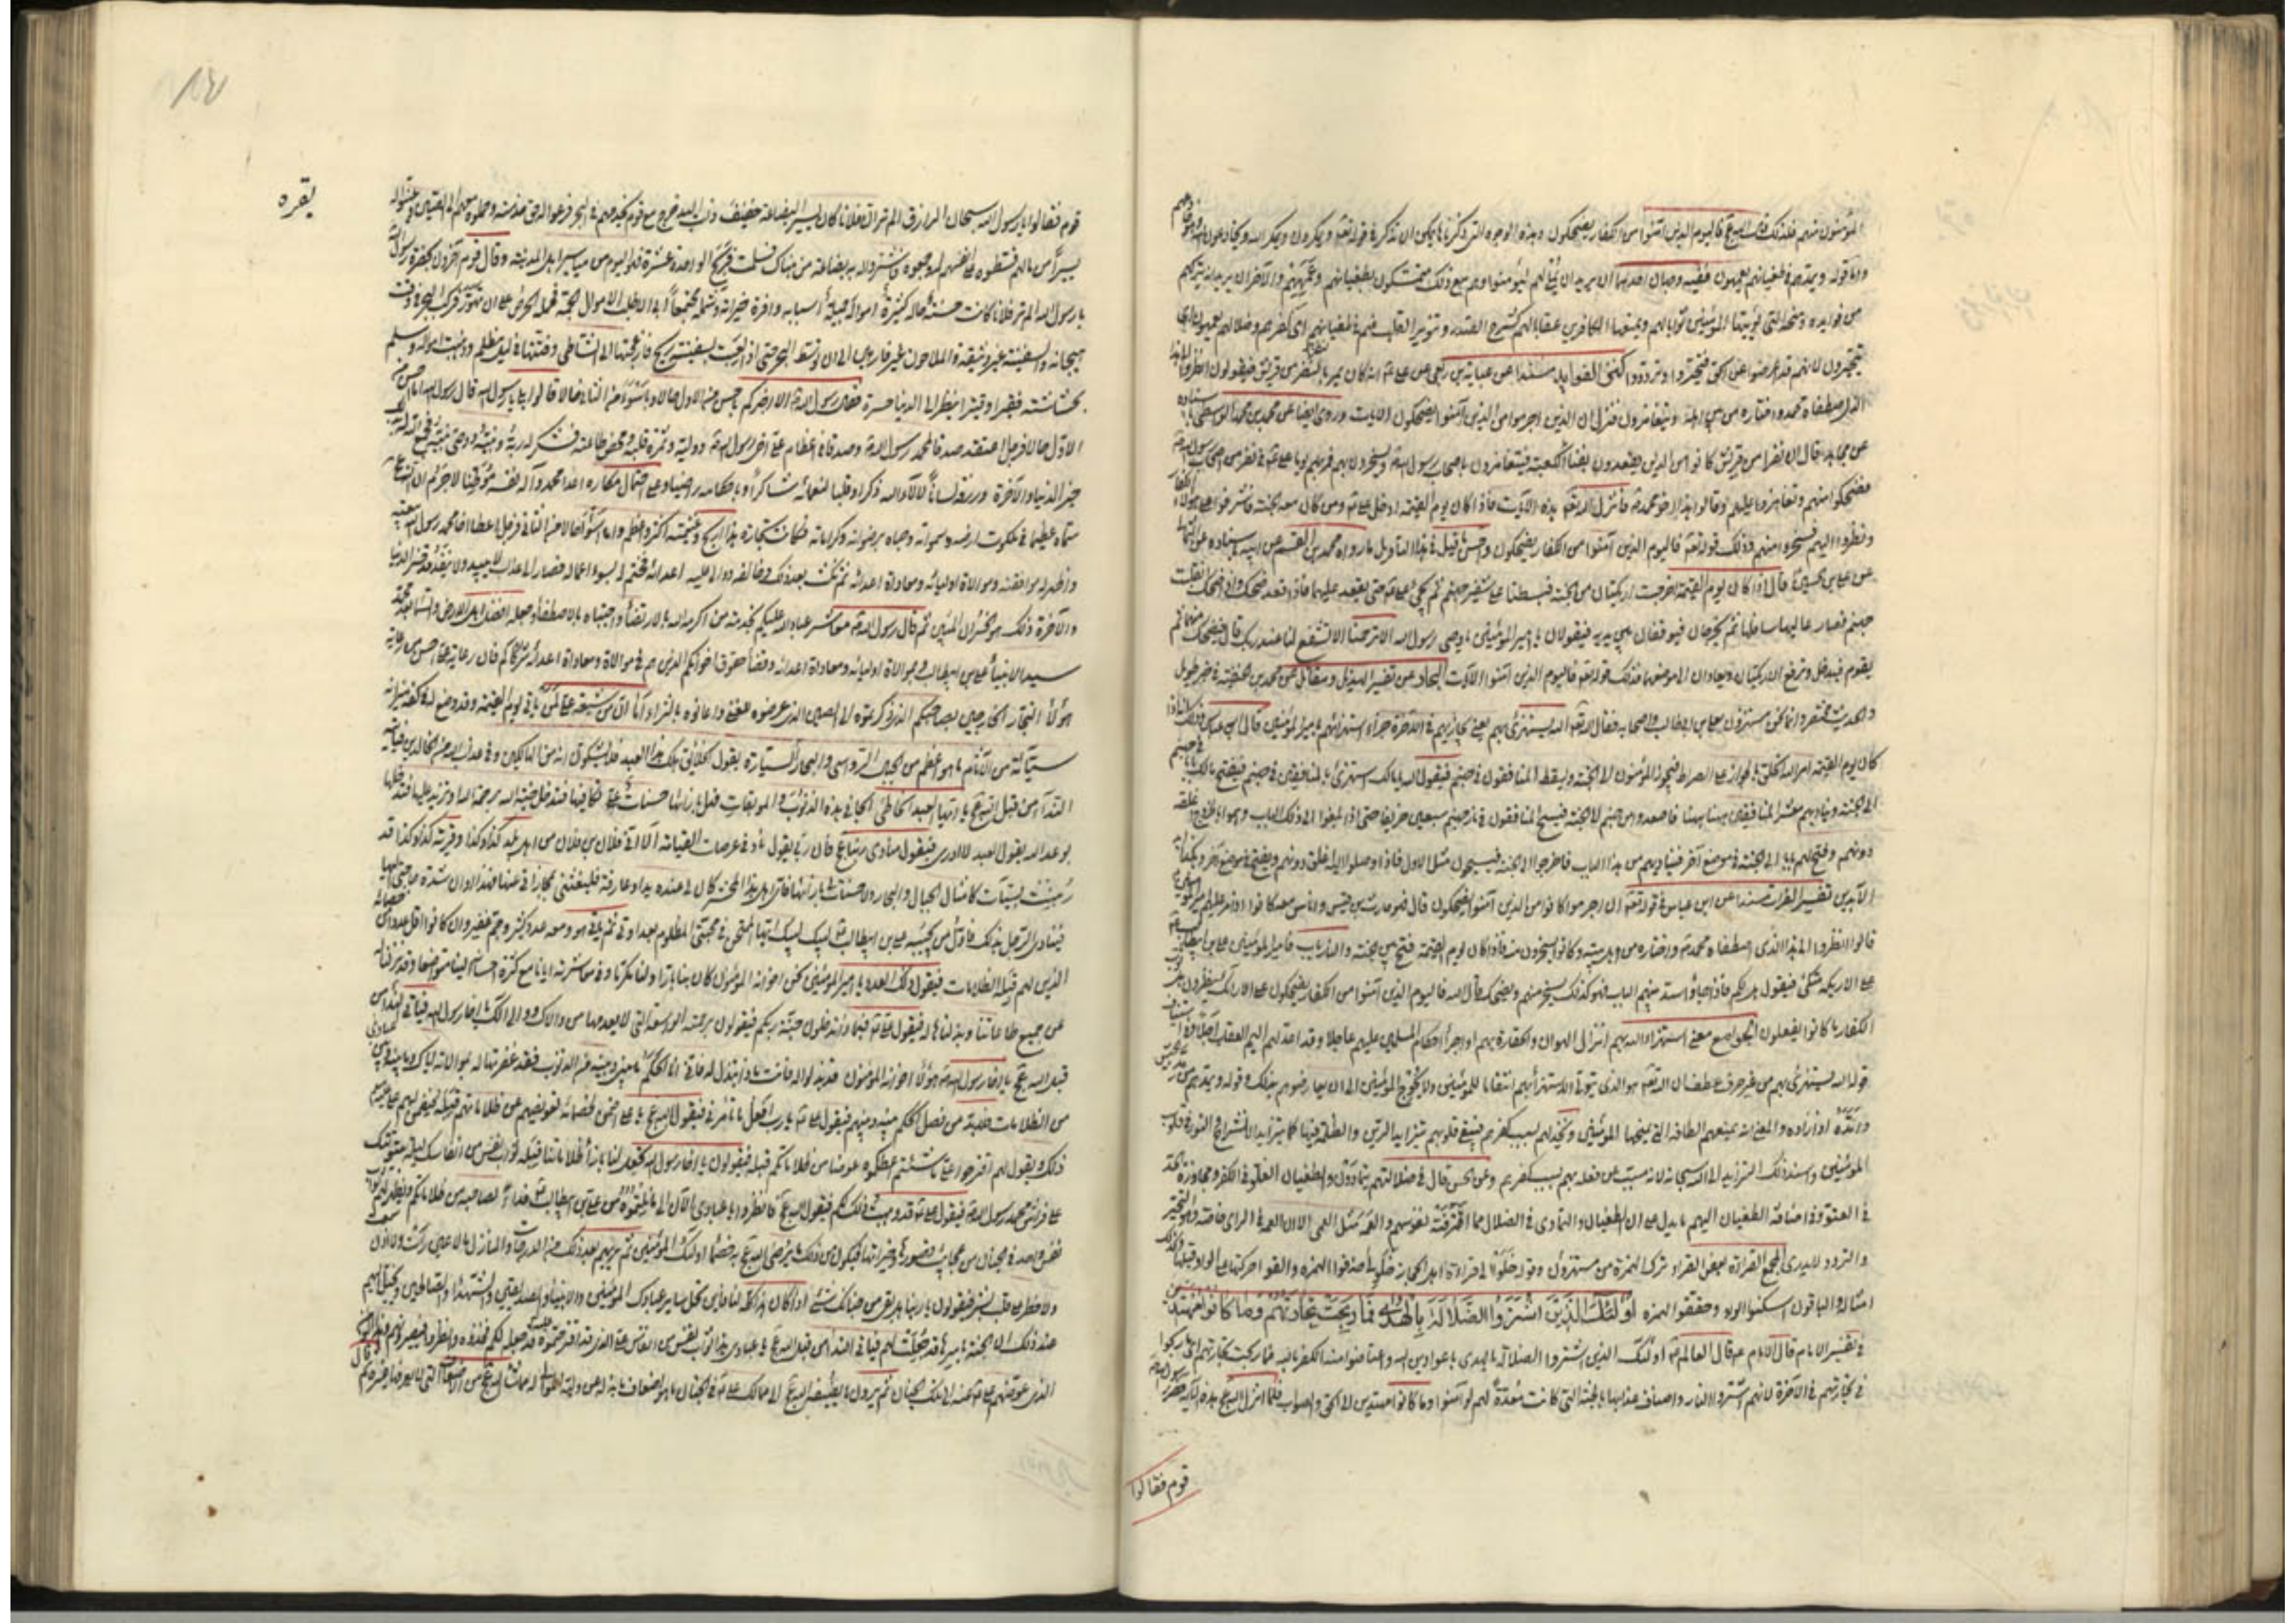 المؤمنون منهم فلذلك قال الله عز وجل فاليوم الذين آمنوا من الكفار يضحكون وهذه الوجوه التي ذكرناها يمكن ان تذكر في قوله تعالى ويمكرون ويمكر الله ويخادعون الله وهو خادعهم
واما قوله ويمدهم في طغيانهم يعمهون ففيه وجهان احدهما ان يريد ان يملي لهم ليؤمنوا وهم مع ذلك متمسكون بطغيانهم وعمههم والآخر ان يريد انه يتركهم
من فوايده ومنحه التي يؤتيها المؤمنين ثوابا لهم ويمنعها الكافرين عقابا لهم كشرح الصدر وتنوير القلب فهم في طغيانهم اي كفرهم وضلالهم يعمهون اي
يتحيرون لانهم قد اعرضوا عن الحق فتحيروا وترددوا كنز الفوايد مسندا عن عباية بن ربعي عن علي انه كان يمر بالنفر من قريش فيقولون انظروا الى هذا
الذي اصطفاه محمد واختاره من بين اهله ويتغامزون فنزل ان الذين اجرموا من الذين آمنوا يضحكون الايات وروى ايضا عن محمد بن محمد الواسطي باسناده
عن مجاهد قال ان نفرا من قريش كانوا من الذين يقعدون بفناء الكعبة فيتغامزون باصحاب رسول الله ويسخرون بهم فمر بهم يوما علي في نفر من اصحاب رسول الله
فضحكوا منهم وتغامزوا عليهم وقالوا هذا اخو محمد فأنزل الله تعالى هذه الآيات فاذا كان يوم القيمة ادخل علي ومن كان معه الجنة فاشرفوا على هؤلاء الكفار
ونظروا اليهم فسخروا منهم وذلك قوله تعالى فاليوم الذين آمنوا من الكفار يضحكون واحسن ما قيل في هذا التأويل ما رواه محمد بن القسم عن ابيه باسناده عن الثمالي
عن علي بن الحسين قال اذا كان يوم القيمة اخرجت اريكتان من الجنة فبسطتا على شفير جهنم ثم يجيء علي حتى يقعد عليهما فاذا قعد ضحك واذا ضحك انقلبت
جهنم فصار عاليها سافلها ثم يخرجان فيوقفان بين يديه فيقولان يا امير المؤمنين يا وصي رسول الله الا ترحمنا الا تشفع لنا عند ربك قال فيضحك منهما ثم
يقوم فيدخل وترفع الاريكتان ويعادان الى موضعهما فذلك قوله تعالى فاليوم الذين آمنوا الآيات البحار عن تفسير الهذيل ومقاتل عن محمد بن الحنفية في خبر طويل
والحديث مختصر انما نحن مستهزؤن بعلي بن ابي طالب واصحابه فقال الله تعالى الله يستهزئ بهم يعني يجازيهم في الآخرة جزاء استهزائهم بامير المؤمنين قال ابن عباس وذلك انه اذا
كان يوم القيمة امر الله الخلق بالجواز على الصراط فيجوز المؤمنون الى الجنة ويسقط المنافقون في جهنم فيقول الله يا مالك استهزئ بالمنافقين في جهنم فيفتح مالك بابا في جهنم
الى الجنة ويناديهم معشر المنافقين ههنا ههنا فاصعدوا من جهنم الى الجنة فيسبح المنافقون في نار جهنم سبعين خريفا حتى اذا بلغوا الى ذلك الباب وهموا بالخروج اغلقه
دونهم وفتح لهم بابا الى الجنة في موضع آخر فيناديهم من هذا الباب فاخرجوا الى الجنة فيسبحون مثل الاول فاذا وصلوا اليه اغلق دونهم ويفتح في موضع آخر وهكذا
ابد الآبدين تفسير الفرات مسندا عن ابن عباس في قوله تعالى ان الذين اجرموا كانوا من الذين آمنوا يضحكون قال فهو حارث بن قيس واناس معه كانوا اذا مر عليهم امير المؤمنين
قالوا انظروا الى هذا الذي اصطفاه محمد واختاره من اهل بيته وكانوا يسخرون منه فاذا كان يوم القيمة فتح بين الجنة والنار باب فامير المؤمنين علي بن ابيطالب
على الاريكة متكئ فيقول هل لكم فاذا جاؤا سد بينهم الباب فهو كذلك يسخر منهم ويضحك قال الله فاليوم الذين آمنوا من الكفار يضحكون على الارائك ينظرون هل ثوب
الكفار ما كانوا يفعلون
قوله الله يستهزئ بهم من غير حرف عطف ان الله تعالى هو الذي يتولى الاستهزاء بهم انتقاما للمؤمنين ولا يحوج المؤمنين الى ان يعارضوهم بذلك وقوله ويمدهم
المؤمنين واسند ذلك التزايد الى الله سبحانه لانه مسبب من فعله بهم بسبب كفرهم وعن الحسن قال في ضلالتهم يتمادون والطغيان الغلو في الكفر ومجاوزة الحد
في العتو وفي اضافة الطغيان اليهم ما يدل على ان الطغيان والتمادي في الضلال مما اقترفته نفوسهم والعمه مثل العمى الا ان العمه في الراي خاصة وهو التحير
والتردد لا يدري المجمع القراءة بعض القراء ترك الهمزة من مستهزؤن وقوله خلوا الى قراءة اهل الحجاز خلو الى حذفوا الهمزة والقوا حركتها على الواو قبلها وكذلك
امثاله والباقون اسكنوا الواو وحققوا الهمزة اولئك الذين اشتروا الضلالة بالهدى فما ربحت تجارتهم وما كانوا مهتدين
في تفسير الامام قال الامام قال العالم اولئك الذين اشتروا الضلالة بالهدى باعوا دين الله واعتاضوا منه الكفر بالله فما ربحت تجارتهم اي ما ربحوا
في تجارتهم في الآخرة لانهم اشتروا النار واصناف عذابها بالجنة التي كانت معدة لهم لو آمنوا وما كانوا مهتدين الى الحق والصواب فلما انزل الله عز وجل هذه الآية حضر رسول الله
قوم فقالوا
بقره
قوم فقالوا يا رسول الله سبحان الرازق الم تر ان فلانا كان يسير البضاعة خفيف ذات اليد خرج مع قوم يخدمهم في البحر فرعوا له حق خدمته وحملوه معهم الى الصين وعينوا له
يسيرا من مالهم قسطوه على انفسهم له وجمعوه فاشتروا له به بضاعة من هناك فسلمت فربح الواحد عشرة فهو اليوم من مياسير اهل المدينة وقال قوم آخرون بحضرة رسول الله
يا رسول الله الم تر فلانا كانت حسنة حاله كثيرة امواله جميلة اسبابه وافرة خيراته وشمله مجتمعا ابى الا طلب الاموال الجمة فحمله الحرص على ان تهور فركب البحر في وقت
هيجانه والسفينة غير وثيقة والملاحون غير فارهين الى ان توسط البحر حتى اذا لعبت بسفينته ريح فازعجتها الى الشاطئ وفتقتها في ليل مظلم وذهبت امواله وسلم
بحشاشته فقيرا وقيرا ينظر الى الدنيا حسرة فقال رسول الله الا اخبركم باحسن من الاول حالا وباسوء من الثاني حالا قالوا بلى يا رسول الله قال رسول الله اما احسن من
الاول حالا فرجل اعتقد صدقا بمحمد رسول الله وصدقا في اعظام علي اخي رسول الله ووليه وثمرة قلبه ومحض طاعته فشكر له ربه ونبيه ووصي نبيه فجمع الله له بذلك
خير الدنيا والآخرة ورزقه لسانا لآلاء الله ذاكرا وقلبا لنعمائه شاكرا وباحكامه راضيا وعلى احتمال مكاره اعداء محمد وآله نفسه موطنا لا جرم ان الله عز وجل
سماه عظيما في ملكوت ارضه وسمواته وحباه برضوانه وكراماته فكانت تجارة هذا اربح وغنيمته اكثر واعظم واما اسوء حالا من الثاني فرجل اعطى اخا محمد رسول الله بيعته
واظهر له موافقته وموالاة اوليائه ومعاداة اعدائه ثم نكث بعد ذلك وخالفه ووالى عليه اعدائه فختم له بسوء اعماله فصار الى عذاب لا يبيد ولا ينفد قد خسر الدنيا
والآخرة ذلك هو الخسران المبين ثم قال رسول الله معاشر عباد الله عليكم بخدمة من اكرمه الله بالارتضاء واجتباه بالاصطفاء وجعله افضل اهل الارض والسماء بعد محمد
سيد الانبياء علي بن ابيطالب وبموالاة اوليائه ومعاداة اعدائه وقضاء حقوق اخوانكم الذين هم في موالاته ومعاداة اعدائه شركاؤكم فان رعاية علي احسن من رعاية
هؤلاء التجار الخارجين بصاحبكم الذي ذكرتموه الى الصين الذي عرضوه للغنى واعانوه بالثراء اما ان من شيعة علي لمن يأتي يوم القيمة وقد وضع له في كفة ميزانه
سيئاته من الآثام ما هو اعظم من الجبال الرواسي والبحار السيارة يقول الخلائق هلك هذا العبد فلا يشكون انه من الهالكين وفي عذاب الله من الخالدين فيأتيه
النداء من قبل الله عز وجل يا ايها العبد الخاطئ الجاني هذه الذنوب الموبقات فهل بازائها حسنات تكافيها فتدخل جنة الله برحمة الله او تزيد عليها فتدخلها
بوعد الله يقول العبد لا ادري فيقول منادي ربنا عز وجل فان ربي يقول ناد في عرصات القيامة الا اني فلان بن فلان من اهل بلد كذا وكذا وقرية كذا وكذا قد
رهنت بسيئات كامثال الجبال والبحار ولا حسنات لي بازائها فاي اهل هذا المحشر كان لي عنده يد او عارفة فليغثني بمجازاتي عنها فهذا اوان شدة حاجتي اليها
فينادي الرجل بذلك فاول من يجيبه علي بن ابيطالب لبيك لبيك ايها الممتحن في محبتي المظلوم بعداوتي ثم يأتي هو ومعه عدد كثير وجم غفير وان كانوا اقل عددا من خصمائه
الذين لهم قبله الظلامات فيقول ذلك العدد يا امير المؤمنين نحن اخوانه المؤمنون كان بنا بارا ولنا مكرما وفي معاشرته ايانا مع كثرة احسانه الينا متواضعا وقد نزلنا له
عن جميع طاعاتنا وبذلناها له فيقول علي فبماذا تدخلون جنة ربكم فيقولون برحمة الله الواسعة التي لا يعدمها من والاك ووالى آلك يا اخا رسول الله فيأتي النداء من
قبل الله عز وجل يا اخا رسول الله هؤلاء اخوانه المؤمنون قد بذلوا له فانت ماذا تبذل له فاني انا الحكم ما بيني وبينه من الذنوب فقد غفرتها له بموالاته اياك وما بينه وبين عبادي
من الظلامات فلا بد من فصل الحكم بينه وبينهم فيقول علي يا رب افعل ما تأمرني فيقول الله عز وجل يا علي اضمن لخصمائه تعويضهم عن ظلاماتهم قبله فيضمن لهم علي
ذلك ويقول لهم اقترحوا علي ما شئتم اعطكموه عوضا من ظلاماتكم قبله فيقولون يا اخا رسول الله تجعل لنا بازاء ظلاماتنا قبله ثواب نفس من انفاسك ليلة مبيتك
على فراش محمد رسول الله فيقول علي قد وهبت ذلك لكم فيقول الله عز وجل فانظروا يا عبادي الآن الى ما نلتموه من علي بن ابيطالب فداء لصاحبه من ظلاماتكم ويظهر لهم ثواب
نفس واحد في الجنان من عجائب قصورها وخيراتها فيكون من ذلك ما يرضي الله عز وجل به خصماء اولئك المؤمنين ثم يريهم بعد ذلك من الدرجات والمنازل ما لا عين رأت ولا اذن سمعت
ولا خطر على قلب بشر فيقولون يا ربنا هل بقي من جناتك شيء اذا كان هذا كله لنا فاين يحل ساير عبادك المؤمنين والانبياء والصديقين والشهداء والصالحين ويخيل اليهم
عند ذلك ان الجنة باسرها قد جعلت لهم فيأتي النداء من قبل الله عز وجل يا عبادي هذا ثواب نفس من انفاس علي الذي قد اقترحتموه عليه قد جعله لكم فخذوه وانظروا فيصيرون هم وهذا المؤمن
الذي عوضهم علي عنه الى تلك الجنان ثم يرون ما يضيفه الله عز وجل الى ممالك علي في الجنان ما هو اضعاف ما بذله عن وليه الموالي له مما شاء الله عز وجل من الاضعاف التي لا يعرفها غيره ثم قال